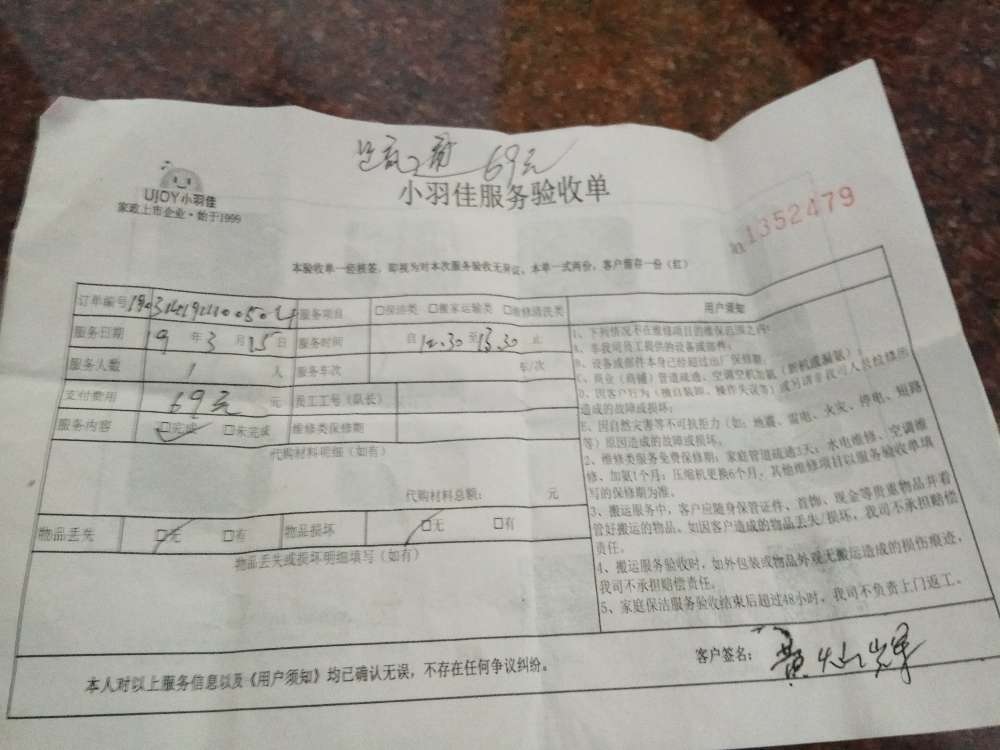 69元
UJOY小羽佳
家政上市企业·始于1999
小羽佳服务验收单
1352479
本验收单一经核签，即视为对本次服务验收无异议。本单一式两份，客户留存一份（红）
订单编号 服务项目 □保洁类 □搬家运输类 □维修清洗类
服务日期 19年3月15日 服务时间 自12.30至13.30止
服务人数 1人 服务车次 车/次
支付费用 69元 元 员工工号（队长）
服务内容 □完成 □未完成 维修类保修期
代购材料明细（如有）
代购材料总额： 元
物品丢失 □无 □有 物品损坏 □无 □有
物品丢失或损坏明细填写（如有）
用户须知
1、下列情况不在维修项目的维保范围之内：
A、非我司员工提供的设备或部件；
B、设备或部件本身已经超过出厂保修期。
C、商业（商铺）管道疏通、空调空机加氨（新机或漏氨）
D、因客户行为（擅自装卸、操作失误等）或另请非我司人员检修所
造成的故障或损坏；
E、因自然灾害等不可抗拒力（如：地震、雷电、火灾、停电、短路
等）原因造成的故障或损坏。
2、维修类服务免费保修期：家庭管道疏通3天；水电维修、空调维
修、加氨1个月；压缩机更换6个月，其他维修项目以服务验收单填
写的保修期为准。
3、搬运服务中，客户应随身保管证件、首饰、现金等贵重物品并看
管好搬运的物品。如因客户造成的物品丢失/损坏，我司不承担赔偿
责任。
4、搬运服务验收时，如外包装或物品外观无搬运造成的损伤痕迹，
我司不承担赔偿责任。
5、家庭保洁服务验收结束后超过48小时，我司不负责上门返工。
本人对以上服务信息以及《用户须知》均已确认无误，不存在任何争议纠纷。
客户签名：